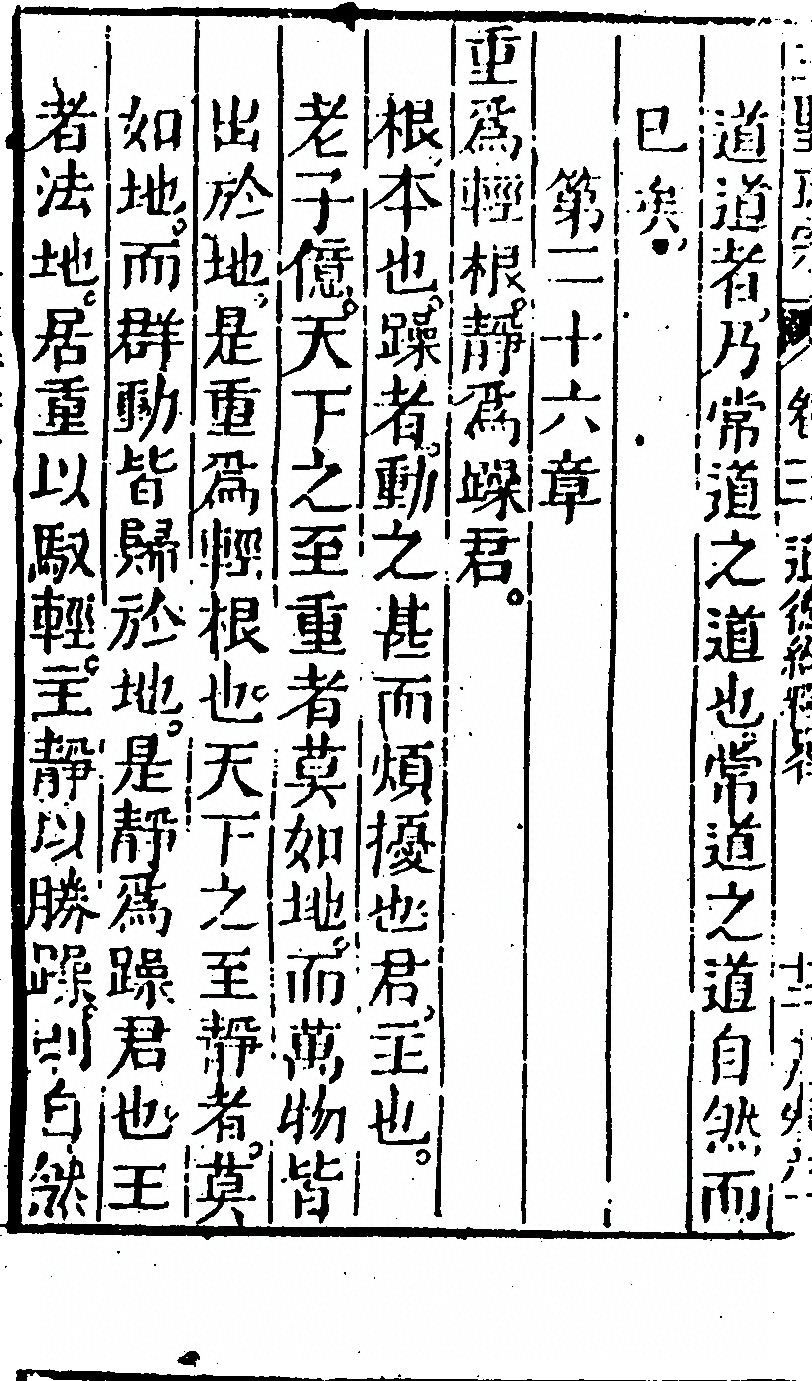 道道者乃常道之道也常道之道自然而
已矣
第二十六章
重為輕根靜為躁君
根本也躁者動之甚而煩擾也君主也
老子億天下之至重者莫如地而萬物皆
出於地是重為輕根也天下之至靜者莫
如地而群動皆歸於地是靜為躁君也王
者法地居重以馭輕主靜以勝躁則自然